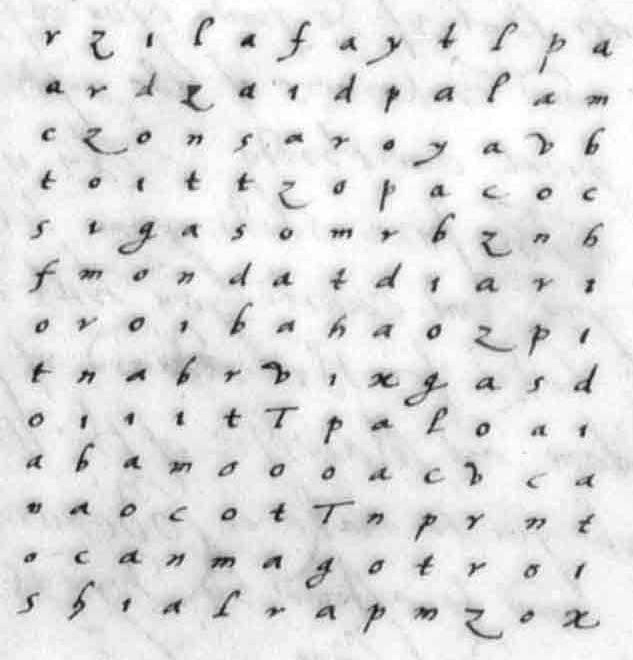 r z i l a f a y t l p a
a r d z a i d p a l a m
c z o n s a r o y a v b
t o i t t z o p a c o c
s i g a s o m r b z n h
f m o n d a t d i a r i
o r o i b a h a o z p i
t n a b r v i x g a s d
o i i i t T p a l o a i
a b a m o o o a c v c a
n a o c o t T n p r n t
o c a n m a g o t r o i
s h i a l r a p m z o x